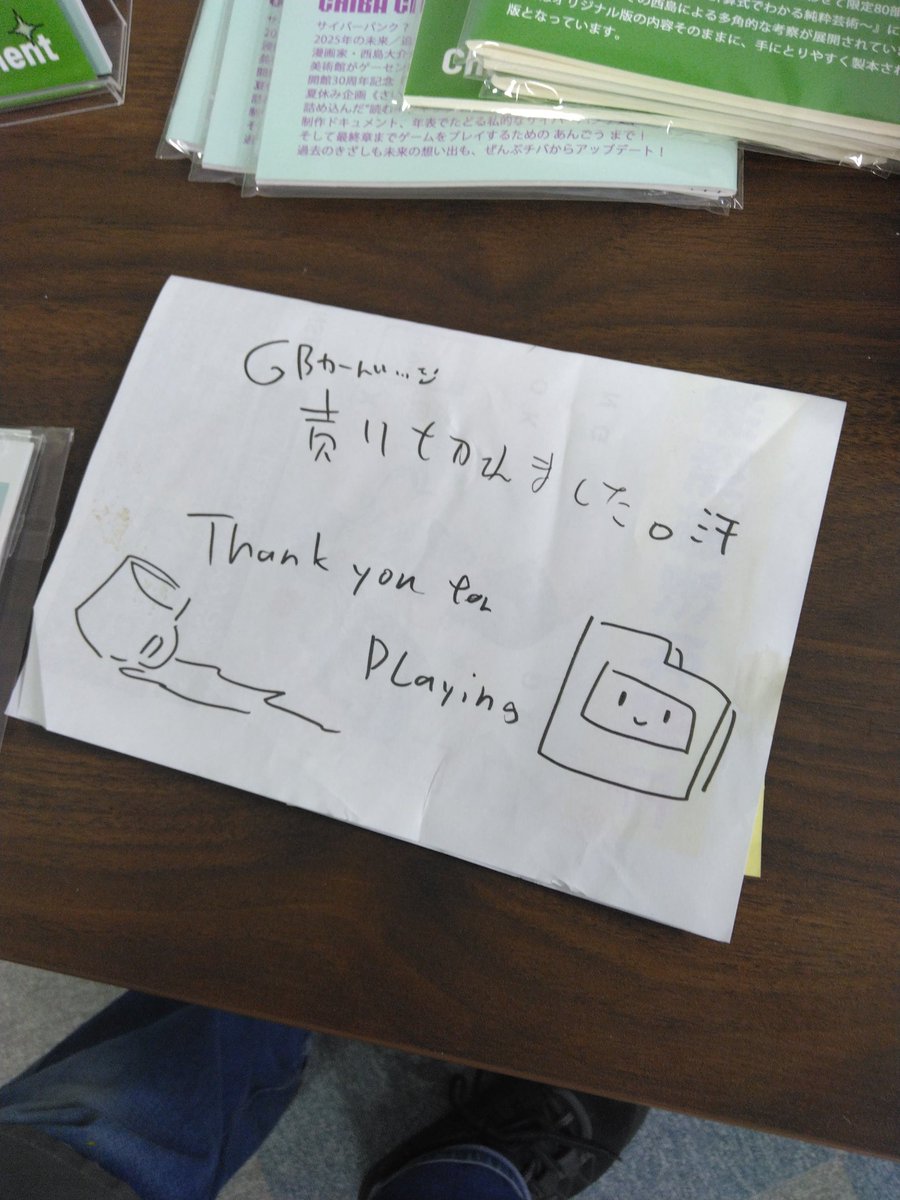 ment
サイバーパンク？
2025年の未来／追
漫画家・西島大介
美術館がゲーセン
開館30周年記念
夏休み企画《さい
詰め込んだ"読む
制作ドキュメント、年表でたどる私的なサイバー
そして最終章までゲームをプレイするための あんごう まで！
過去のきざしも未来の想い出も、ぜんぶチバからアップデート！
せて限定80部
算式でわかる純粋芸術～』に
の西島による多角的な考察が展開されてい
オリジナル版の内容そのままに、手にとりやすく製本され
版となっています。
GBかーとりっじ
売りきれました。汗
Thank you for
PLaying